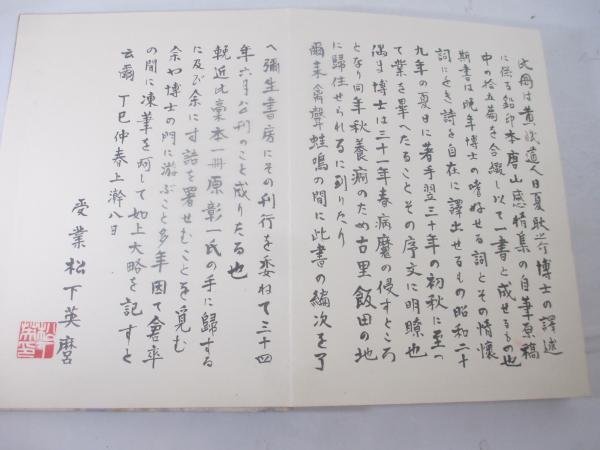 此冊は黄眠道人日夏耿之介博士の譯述
に係る鉛印本唐山感情集の自筆原稿
中の拾五葉を合綴し以て一書と成せるもの也
斯書は晩年博士の嗜好せる詞とその情懷
詞にとき詩を自在に譯出せるもの昭和二十
九年の夏日に著手翌三十年の初秋に至つ
て業を畢へたることその序文に明瞭也
偶ま博士は三十一年春病魔の侵すところ
となり同年秋養病のため古里飯田の地
に歸住せられるに到りたり
爾来禽聲蛙鳴の間に此書の編次を了
へ彌生書房にその刊行を委ねて三十四
年六月公刊のこと成りたる也
輓近此稾本一冊原彰一氏の手に歸する
に及び余に寸語を署せむことを覓む
余や博士の門に游ぶこと多年因て倉卒
の間に凍筆を呵して如上大略を記すと
云爾 丁巳仲春上澣八日
受業 松下英麿